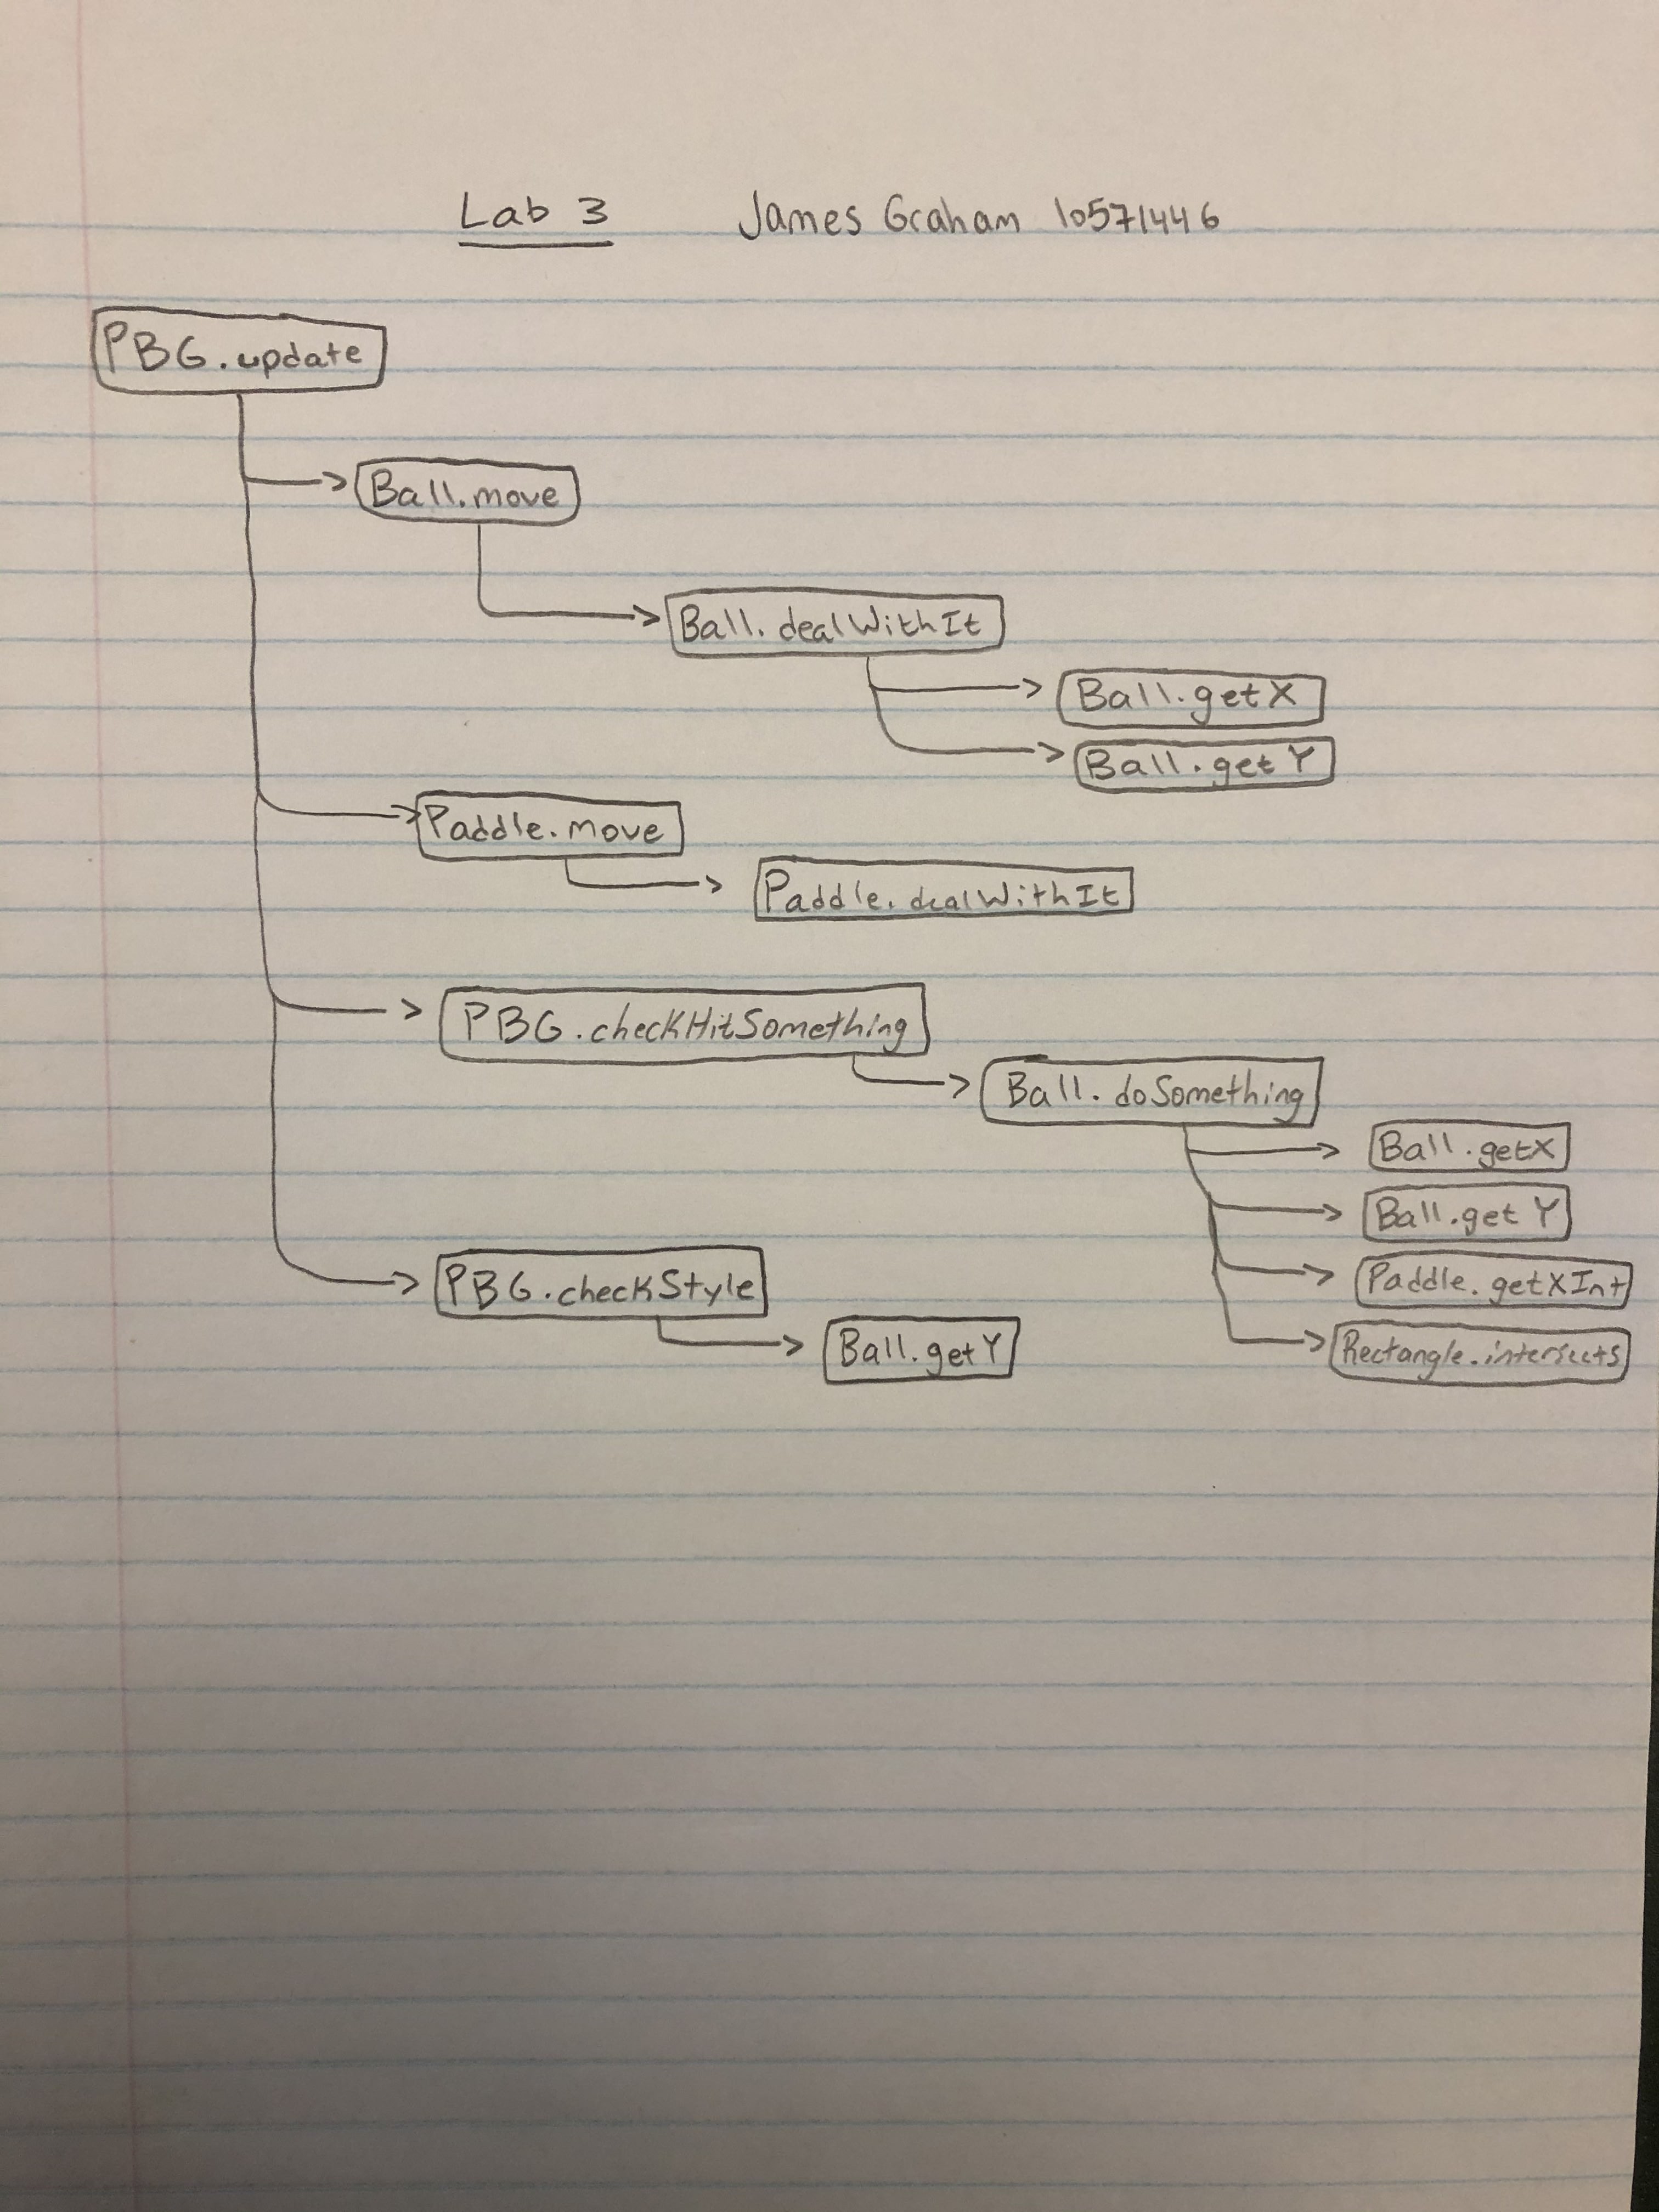 Lab 3 James Graham 10571446
PBG.update
Ball.move
Ball.dealWithIt
Ball.getX
Ball.getY
Paddle.move
Paddle.dealWithIt
PBG.checkHitSomething
Ball.doSomething
Ball.getX
Ball.getY
Paddle.getXInt
PBG.checkStyle
Ball.getY
Rectangle.intersects